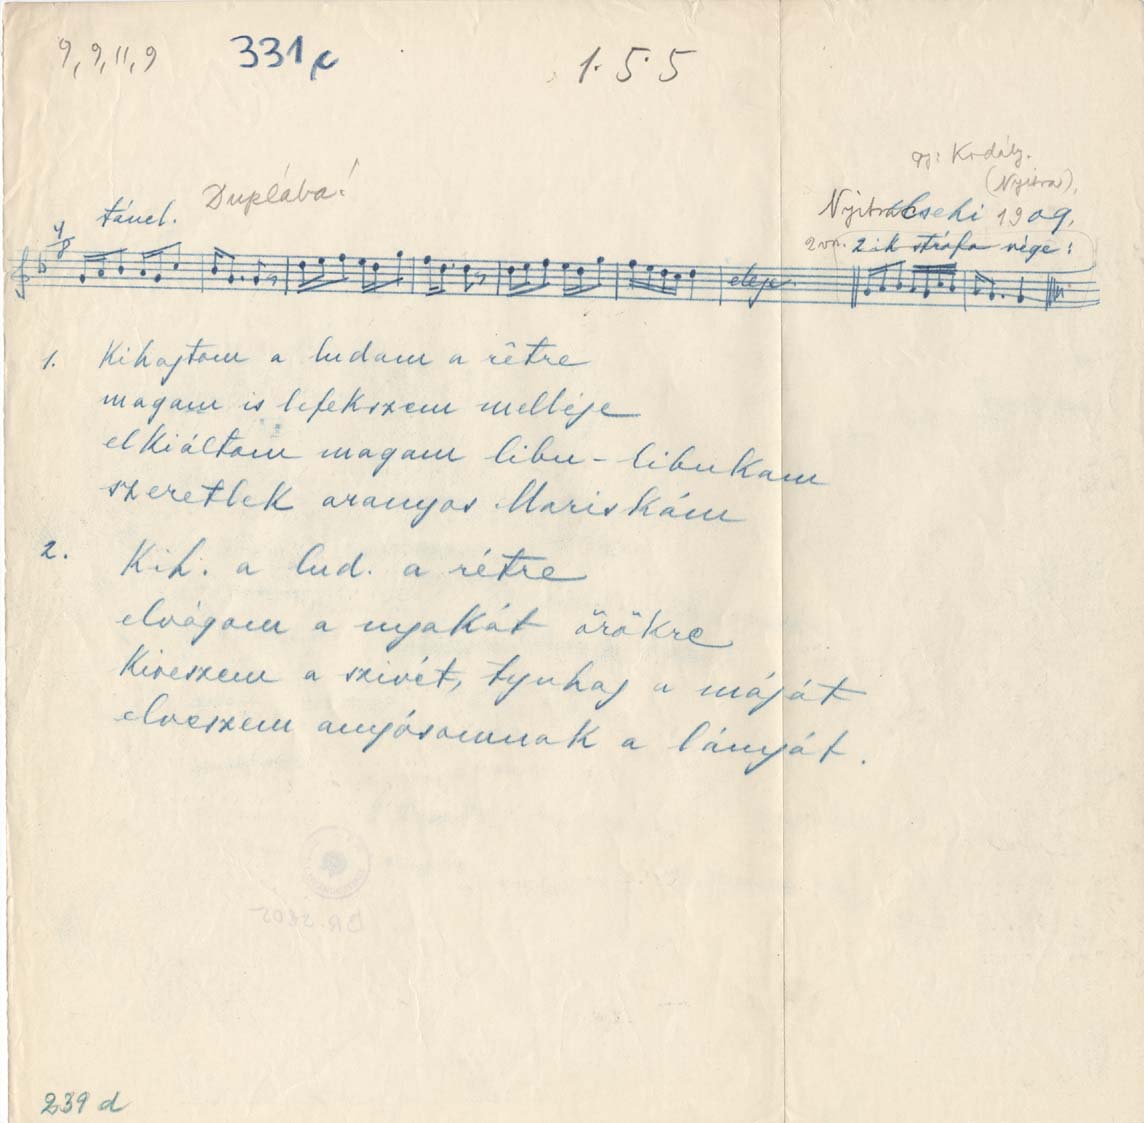 9, 9, 11, 9 331 1. 5. 5
gy: Kodály.
(Nyitra),
táncd. Duplába! Nyitracsehi 1909.
2 ik strófa vége:
eleje
1. Kihajtom a ludam a rétre
magam is lefekszem melléje
elkiáltom magam libu-libukam
szeretlek aranyos Mariskám
2. Kih. a lud. a rétre
elvágom a nyakát örökre
Kiveszem a szivét, tyuhaj a máját
elveszem anyósomnak a lányát.
BR. 
239 d